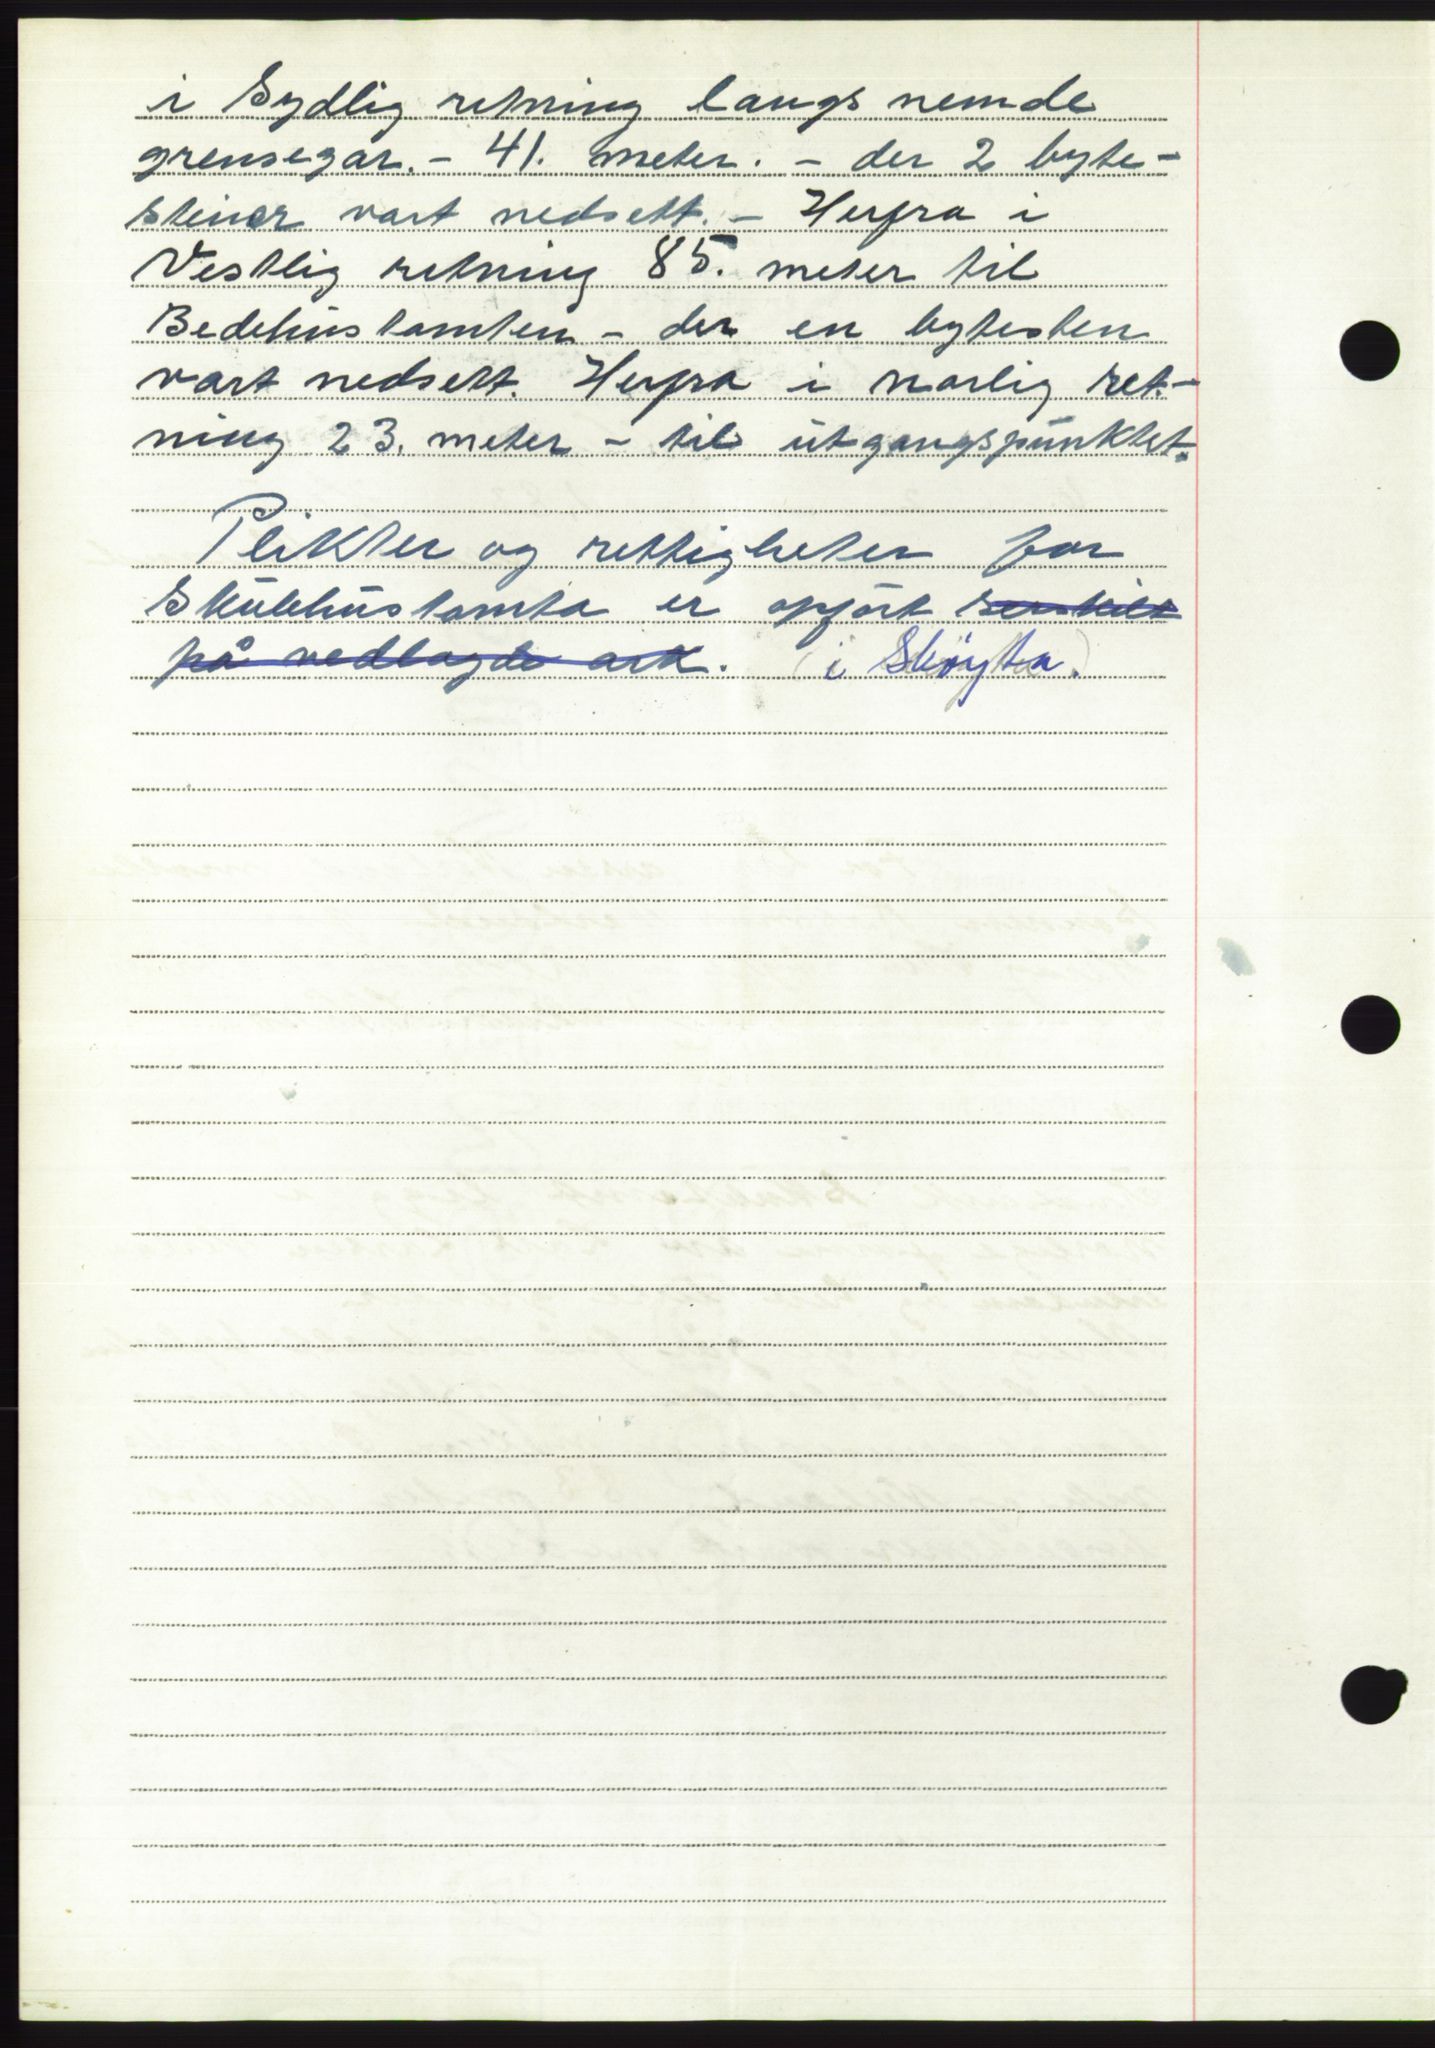 i Sydlig retning langs nemde
grensegar. - 41. meter. - der 2 byte-
steiner vart nedsett. - Herfra i
Vestlig retning 85. meter til
Bedehustomten - der en bytesten
vart nedsett. Herfra i norlig ret-
ning 23. meter - til utgangspunktet.
Plikter og rettigheter for
Skulehustomta er opført serskilt
på vedlagde ark. (i Skøyta.)